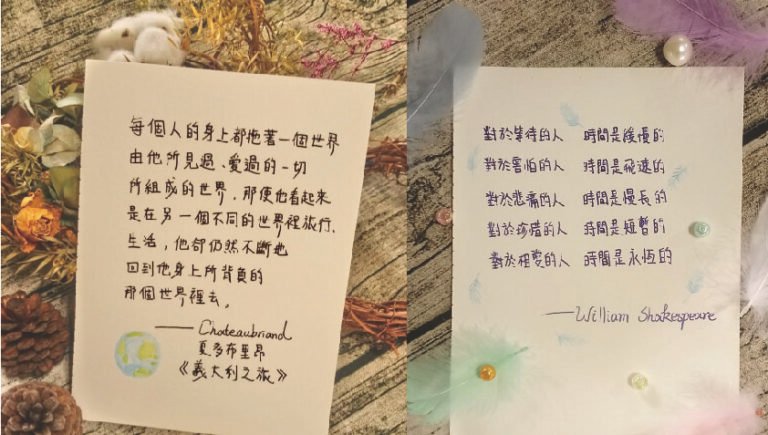 每個人的身上都拖著一個世界
由他所見過、愛過的一切
所組成的世界，那便他看起來
是在另一個不同的世界裡旅行、
生活，他卻仍然不斷地
回到他身上所背負的
那個世界裡去。
——Chateaubriand
夏多布里昂
《義大利之旅》
對於等待的人 時間是緩慢的
對於害怕的人 時間是飛逝的
對於悲痛的人 時間是慢長的
對於珍惜的人 時間是短暫的
對於相愛的人 時間是永恆的
——William Shakespeare